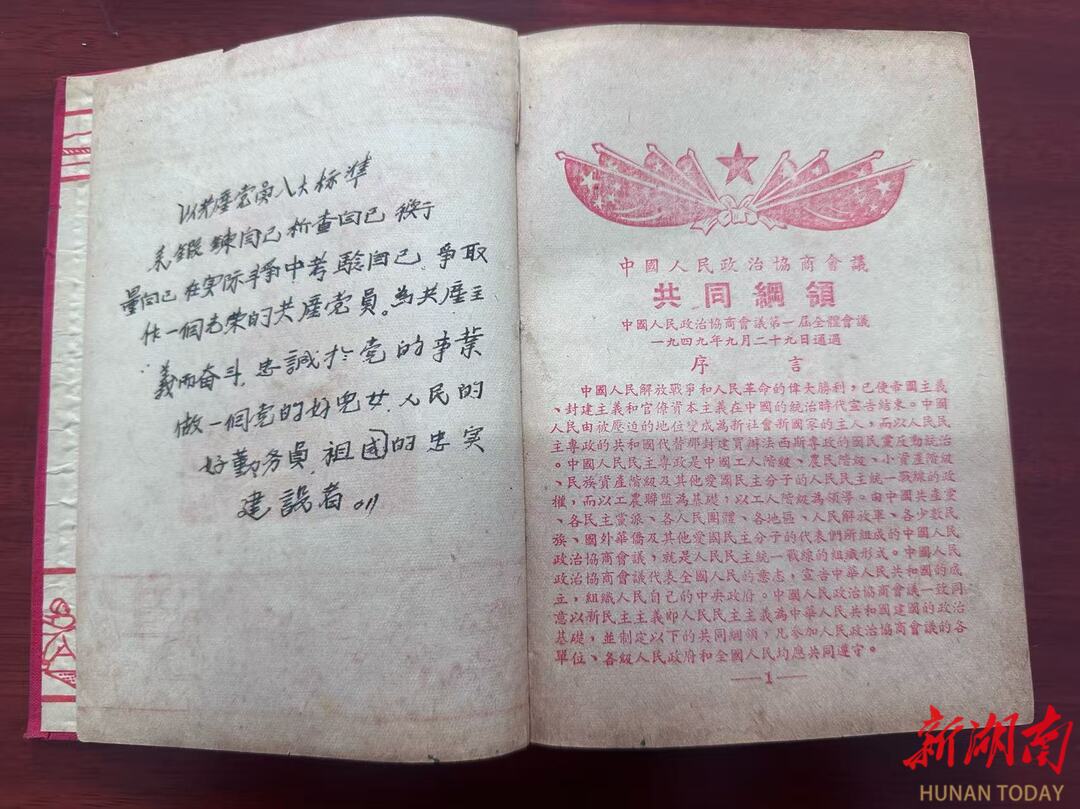 以共產党員八大标準
來鍛鍊自己析查自己 衡
量自己 在实际手 中考驗自己. 爭取
作一個光荣的共產党員。為共產主
義而奋斗. 忠誠於党的事業
做一個党的好兒女. 人民的
好勤务員. 祖国的忠实
建設者。
中國人民政治協商會議
共同綱領
中國人民政治協商會議第一屆全體會議
一九四九年九月二十九日通過
序言
中國人民解放戰爭和人民革命的偉大勝利，已使帝國主義
、封建主義和官僚資本主義在中國的統治時代宣告結束。中國
人民由被壓迫的地位變成為新社會新國家的主人，而以人民民
主專政的共和國代替那封建買辦法西斯專政的國民黨反動統治
。中國人民民主專政是中國工人階級、農民階級、小資產階級
、民族資產階級及其他愛國民主分子的人民民主統一戰線的政
權，而以工農聯盟為基礎，以工人階級為領導。由中國共產黨
、各民主黨派、各人民團體、各地區、人民解放軍、各少數民
族、國外華僑及其他愛國民主分子的代表們所組成的中國人民
政治協商會議，就是人民民主統一戰線的組織形式。中國人民
政治協商會議代表全國人民的意志，宣告中華人民共和國的成
立，組織人民自己的中央政府。中國人民政治協商會議一致同
意以新民主主義即人民民主主義為中華人民共和國建國的政治
基礎，並制定以下的共同綱領，凡參加人民政治協商會議的各
單位、各級人民政府和全國人民均應共同遵守。
—1—
新湖南
HUNAN TODAY